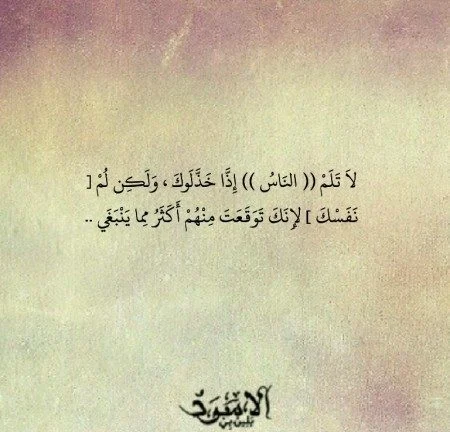 لاَ تَلَمْ (( النَاسُ )) إِذَّا خَذَّلَوكَ ، وَلَكِن لُمْ [
نَفَسْكَ ] لإِنَكَ تَوَقَعَتَ مِنْهُمْ أَكَثَرُ مِما يَنْبَغَي ..
الاسود